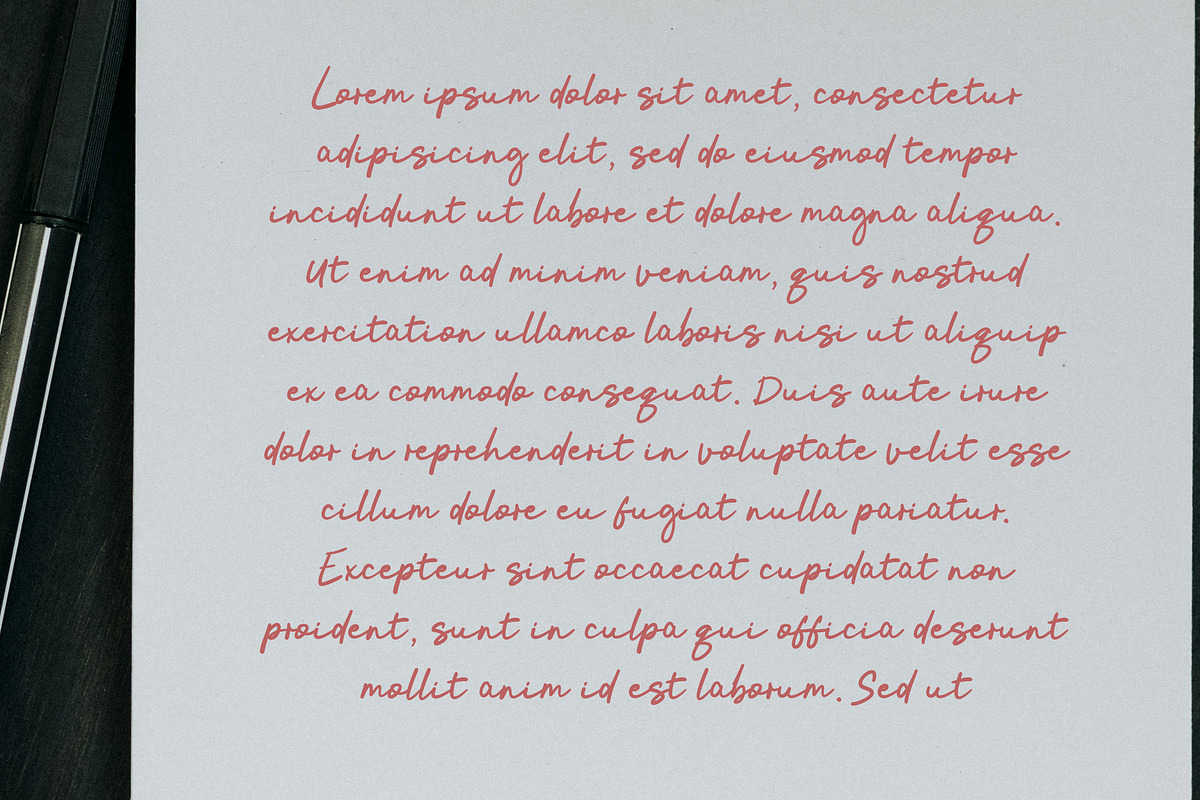 Lorem ipsum dolor sit amet, consectetur
adipisicing elit, sed do eiusmod tempor
incididunt ut labore et dolore magna aliqua.
Ut enim ad minim veniam, quis nostrud
exercitation ullamco laboris nisi ut aliquip
ex ea commodo consequat. Duis aute irure
dolor in reprehenderit in voluptate velit esse
cillum dolore eu fugiat nulla pariatur.
Excepteur sint occaecat cupidatat non
proident, sunt in culpa qui officia deserunt
mollit anim id est laborum. Sed ut